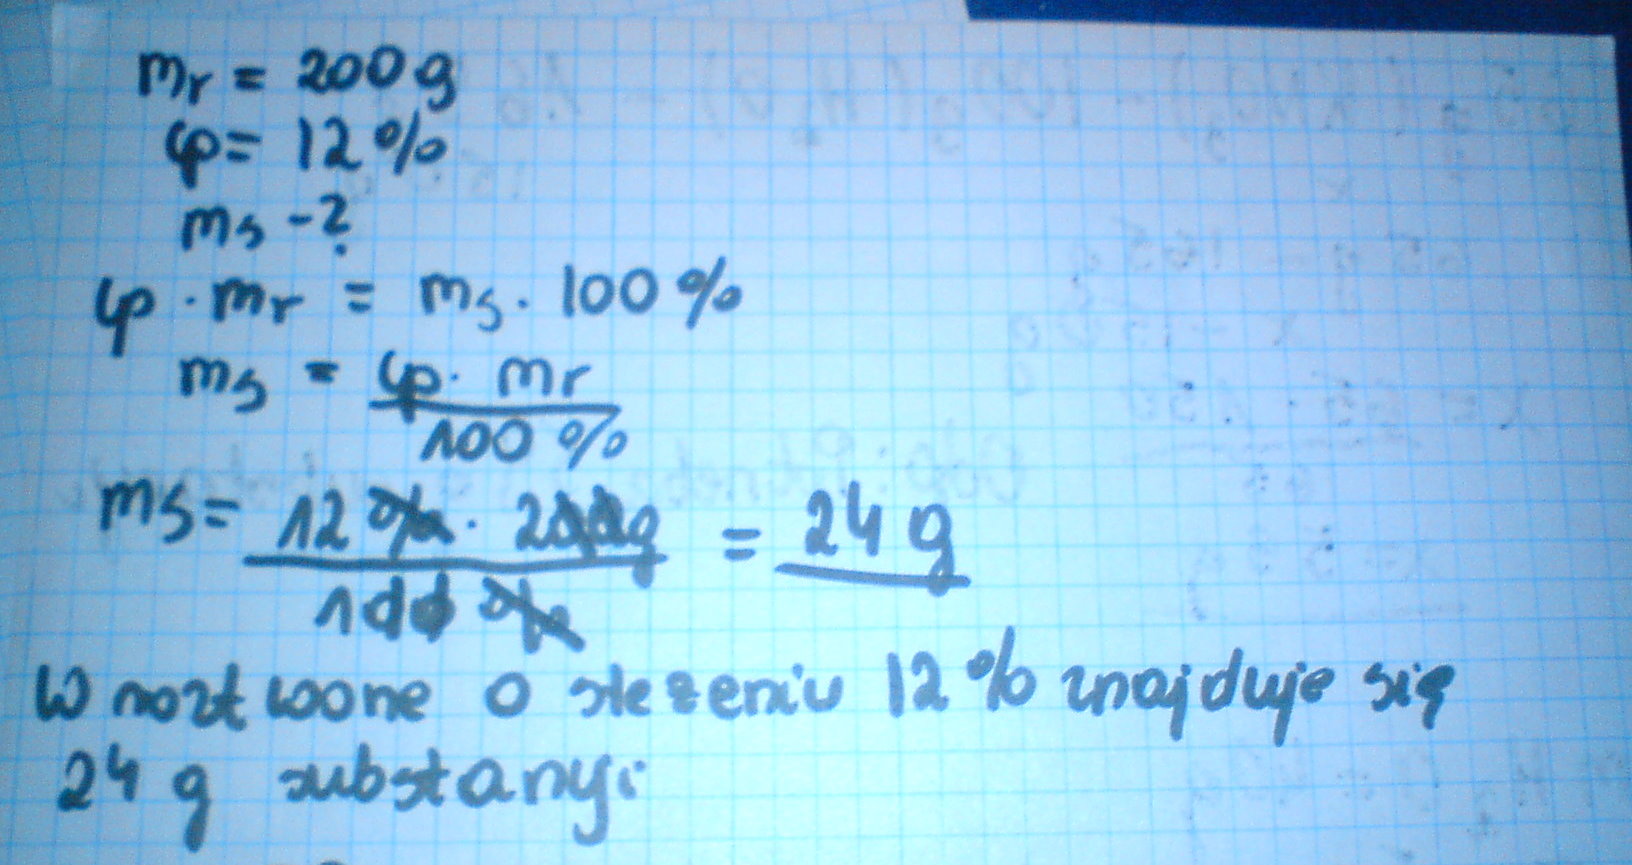 mr = 200 g
cp = 12 %
ms - ?
cp · mr = ms · 100 %
ms = cp · mr / 100 %
ms = 12 % · 200 g / 100 % = 24 g
W roztworze o stężeniu 12 % znajduje się
24 g substanyi